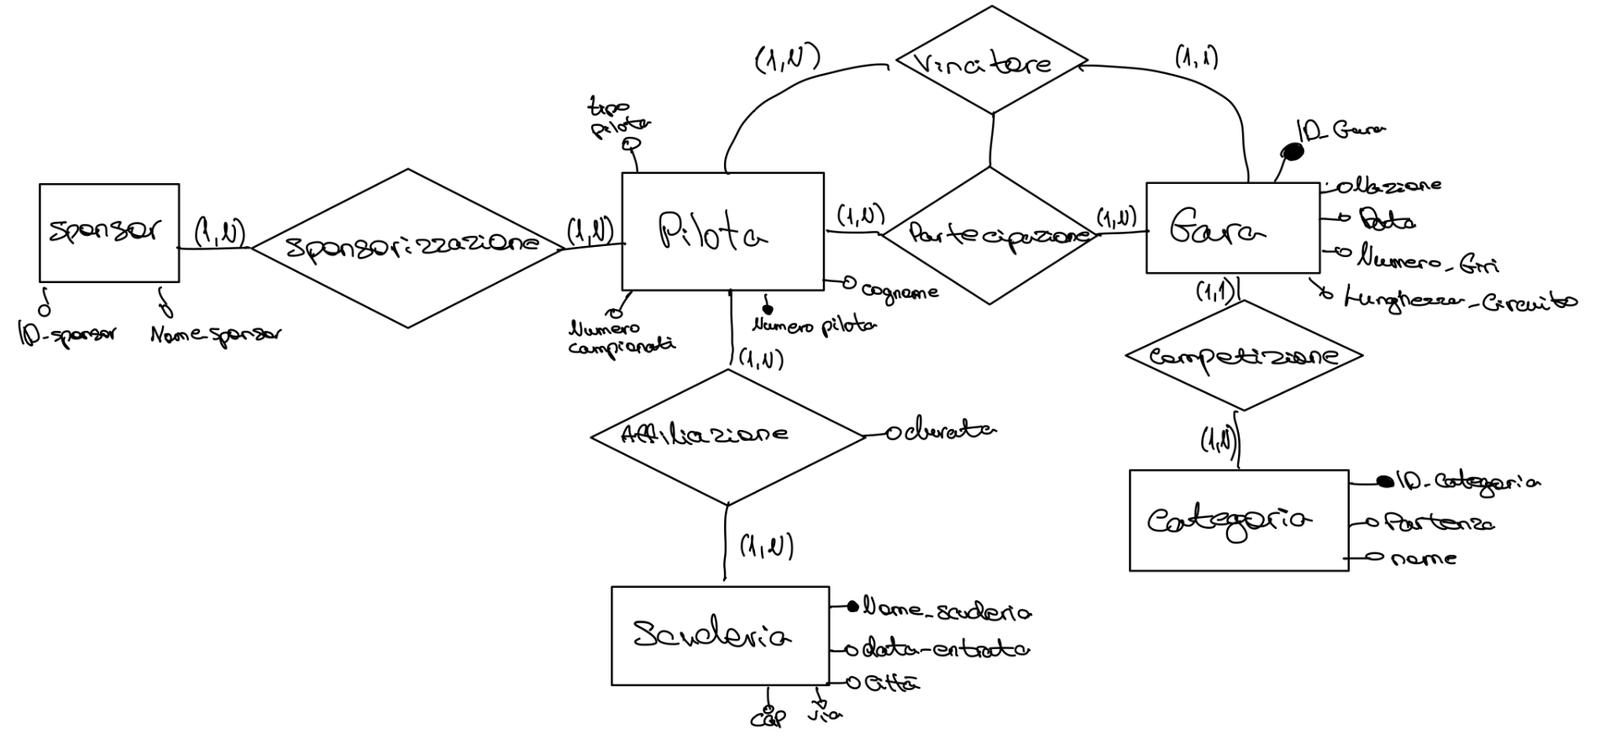 Vincitore
(1,N)
(1,1)
tipo
pilota
ID_Gara
Sponsor
(1,N)
Sponsorizzazione
(1,N)
Pilota
(1,N)
Partecipazione
(1,N)
Gara
Nazione
Data
Numero_Giri
Lunghezza_Circuito
ID-sponsor
Nome-sponsor
Numero
campionati
Numero pilota
cognome
(1,1)
Competizione
(1,N)
Affiliazione
durata
(1,N)
Categoria
ID-categoria
Partenza
nome
(1,N)
Scuderia
Nome_scuderia
data-entrata
Città
cap
via